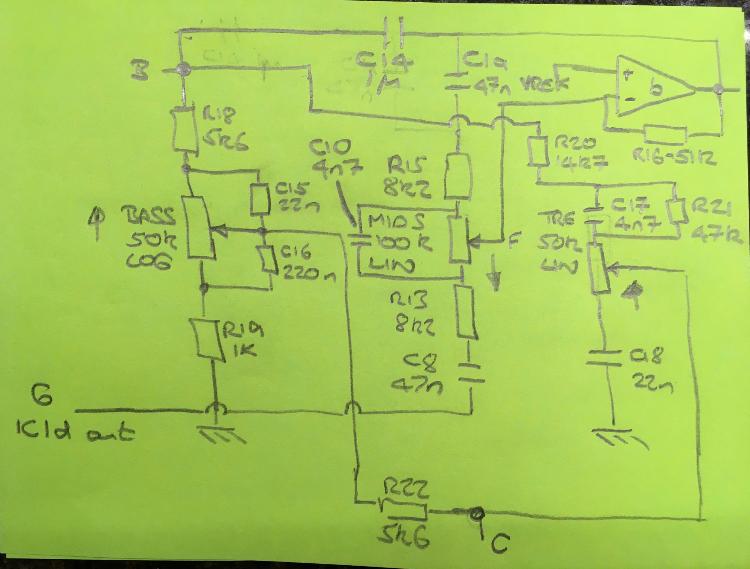 C14
1M
C19
47n
VREF
+
b
-
B
R18
5k6
C10
4n7
R15
8k2
R20
14k7
R16-51k
C15
22n
BASS
50k
LOG
MIDS
100k
LIN
F
TRE
50k
LIN
C17
4n7
R21
47k
C16
220n
R19
1K
R13
8k2
C8
47n
C18
22n
G
IC1d out
R22
5k6
C